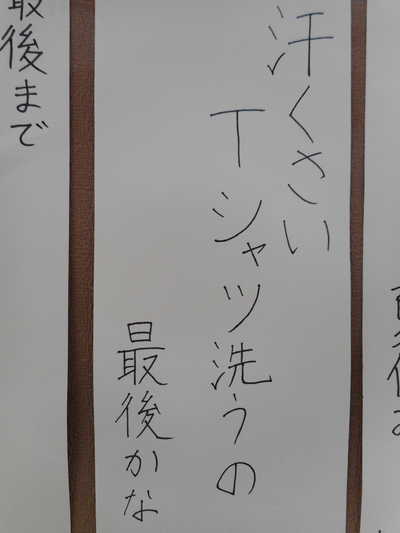 汗くさい
Tシャツ洗うの
最後かな
最後まで